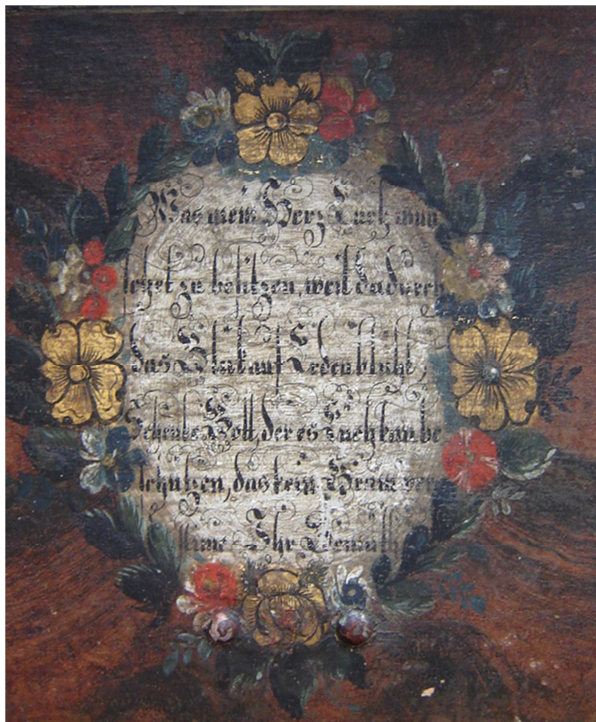 Was mein Herz Euch wün
schet zu besitzen, weil dadurch
das Glük auf Erden blüht,
Schenke Gott, der es Euch kan be
schützen, das kein Gram ver
Ihr Gemüth